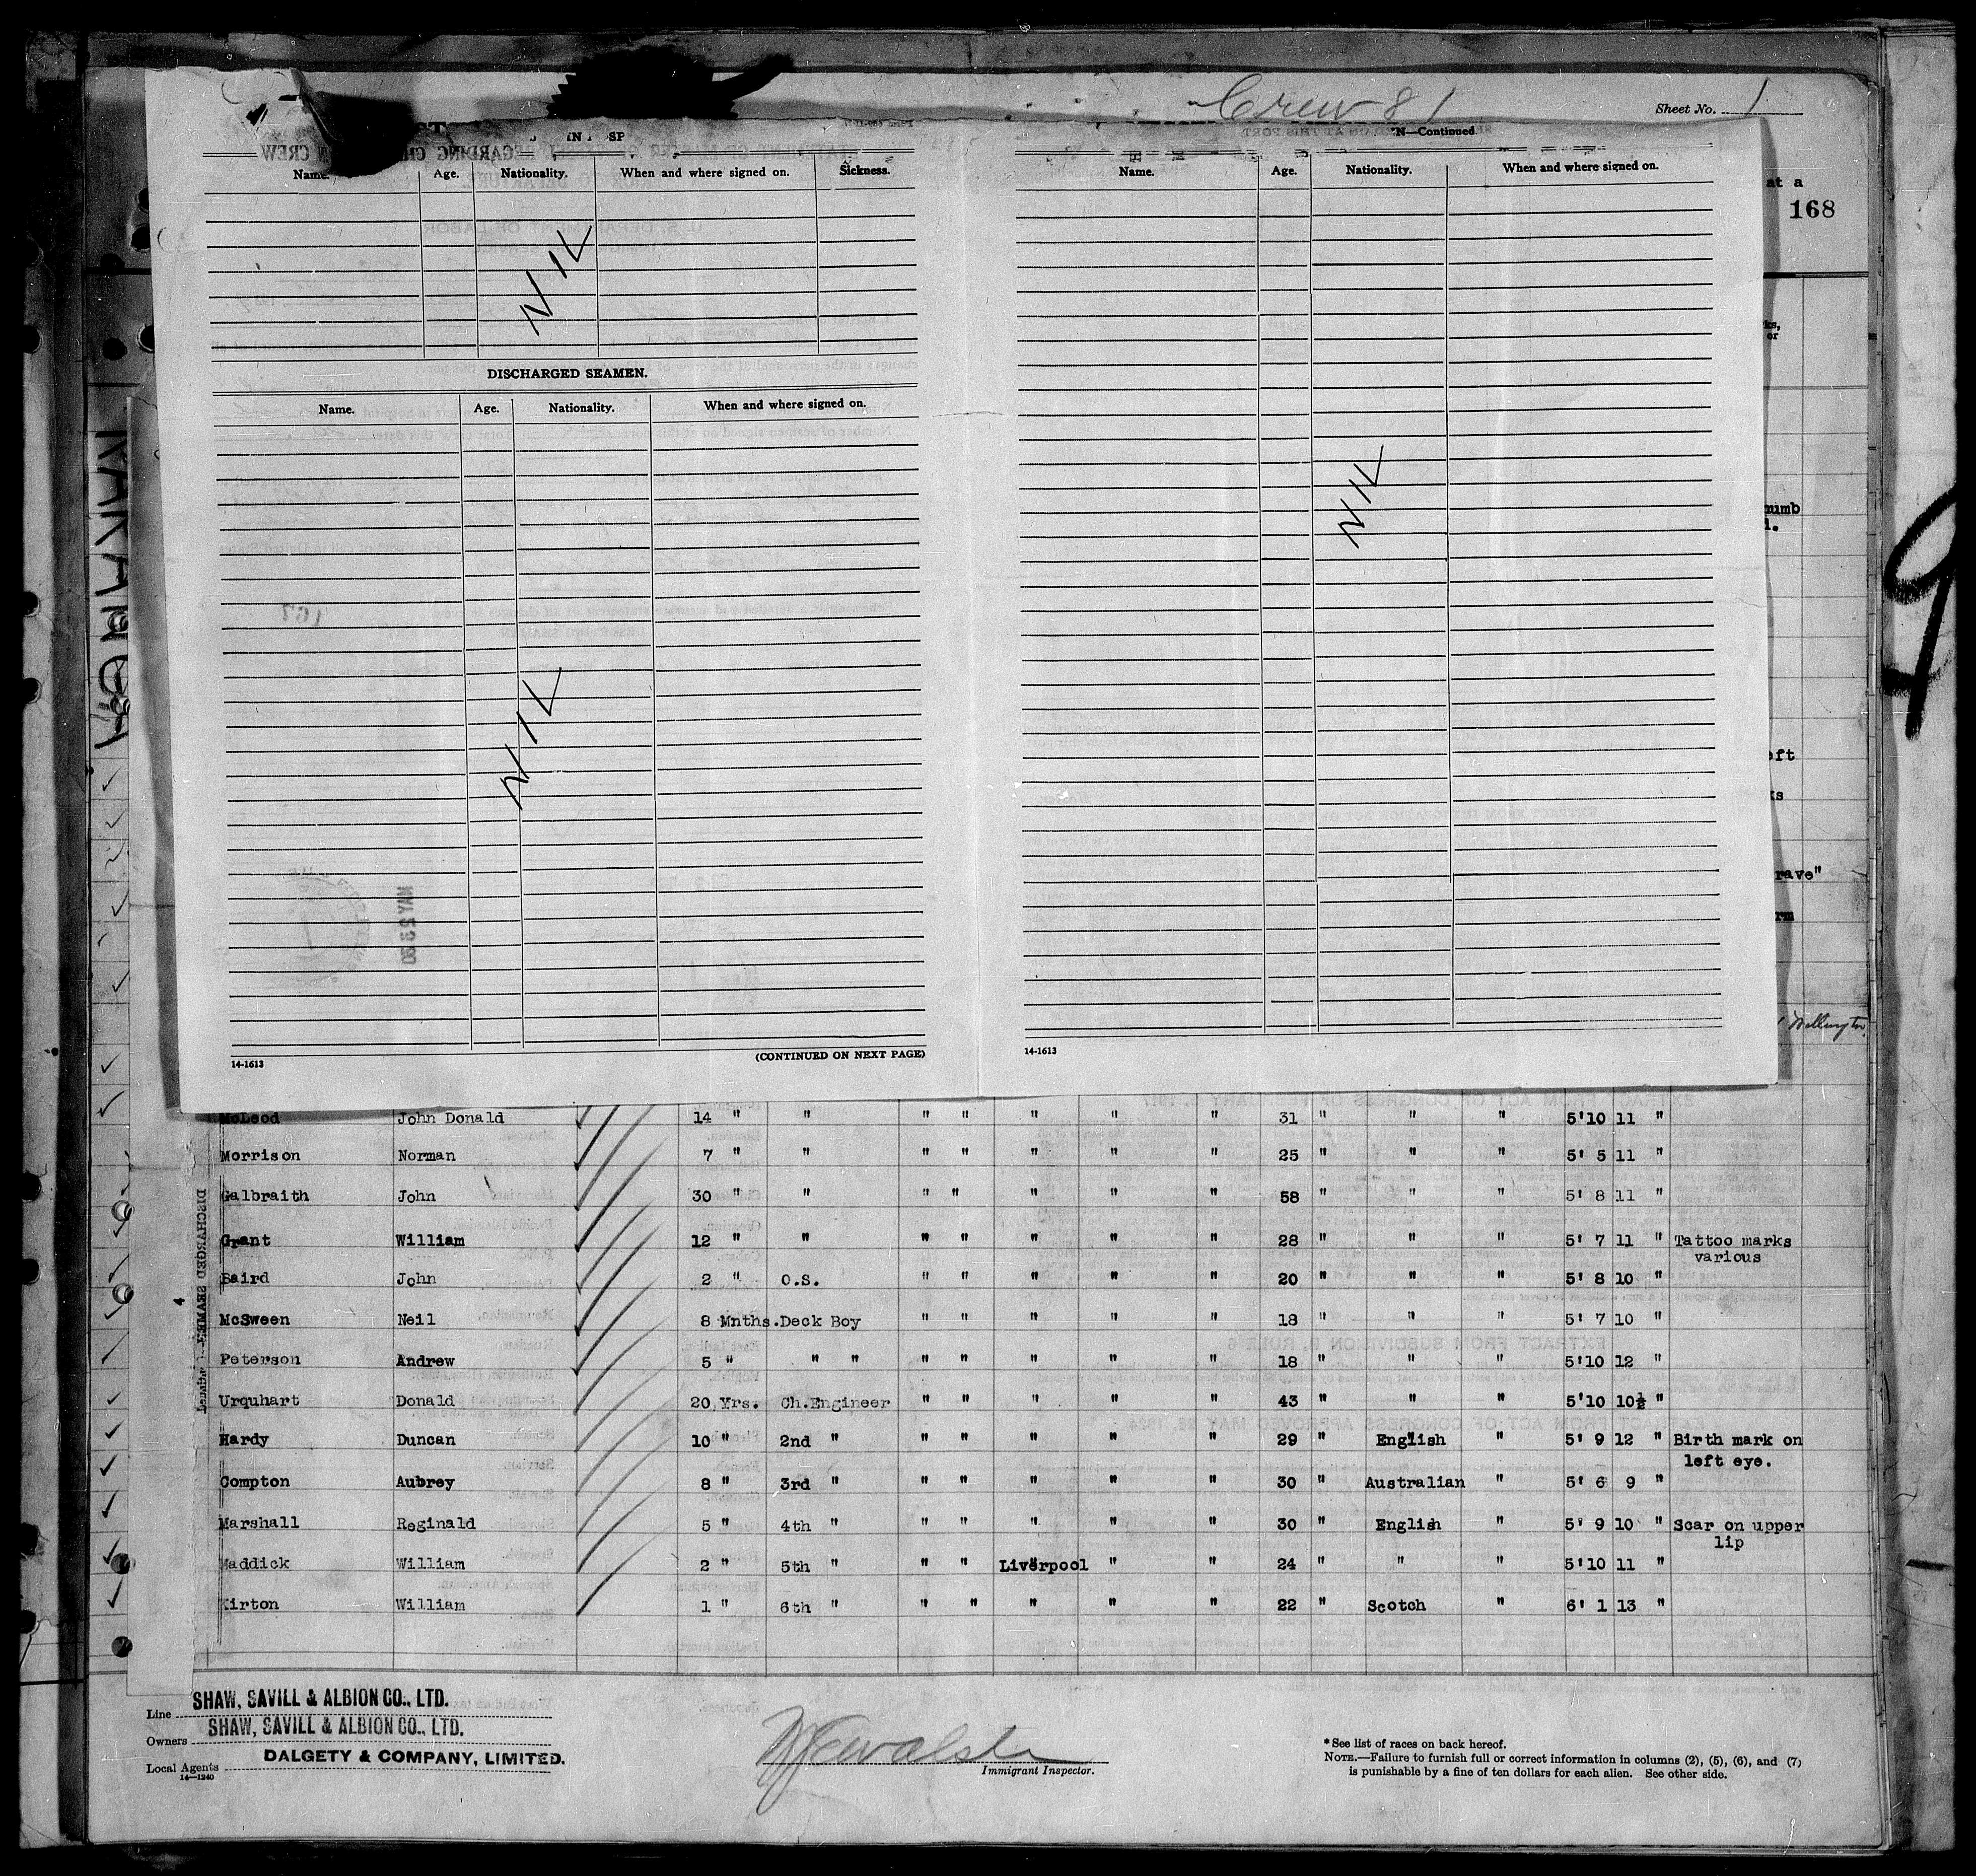 Crew 81
Sheet No. 1
at a
168
N—Continued
Name. Age. Nationality. When and where signed on. Sickness.
NIL
DISCHARGED SEAMEN.
Name. Age. Nationality. When and where signed on.
NIL
14-1613 (CONTINUED ON NEXT PAGE)
Name. Age. Nationality. When and where signed on.
NIL
14-1613
eft
rave"
Wellington
McLeod John Donald 14 " " " " " " " 31 " " " 5'10 11 "
Morrison Norman 7 " " " " " " " 25 " " " 5' 5 11 "
Galbraith John 30 " " " " " " " 58 " " " 5' 8 11 "
Grant William 12 " " " " " " " 28 " " " 5' 7 11 " Tattoo marks
various
Baird John 2 " O.S. " " " " " 20 " " " 5' 8 10 "
McSween Neil 8 Mnths. Deck Boy " " " " " 18 " " " 5' 7 10 "
Peterson Andrew 5 " " " " " " " " 18 " " " 5'10 12 "
Urquhart Donald 20 Yrs. Ch.Engineer " " " " " 43 " " " 5'10 10½ "
Hardy Duncan 10 " 2nd " " " " " " 29 " English " 5' 9 12 " Birth mark on
left eye.
Compton Aubrey 8 " 3rd " " " " " " 30 " Australian " 5' 6 9 "
Marshall Reginald 5 " 4th " " " " " " 30 " English " 5' 9 10 " Scar on upper
lip
Maddick William 2 " 5th " " " Liverpool " " 24 " " " 5'10 11 "
Kirton William 1 " 6th " " " " " " 22 " Scotch " 6' 1 13 "
Line SHAW, SAVILL & ALBION CO., LTD.
Owners SHAW, SAVILL & ALBION CO., LTD.
Local Agents DALGETY & COMPANY, LIMITED.
14—1240
Immigrant Inspector.
*See list of races on back hereof.
NOTE.—Failure to furnish full or correct information in columns (2), (5), (6), and (7)
is punishable by a fine of ten dollars for each alien. See other side.